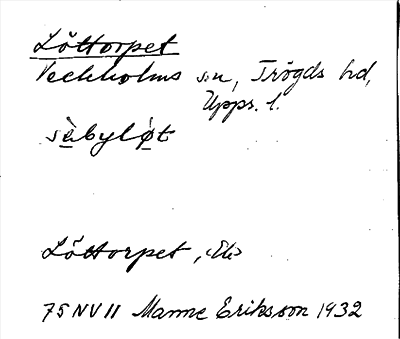 Löttorpet
Veckholms sn, Trögds hd,
Upps. l.
sèbylǿt
Löttorpet,
75 NV II Manne Eriksson 1932